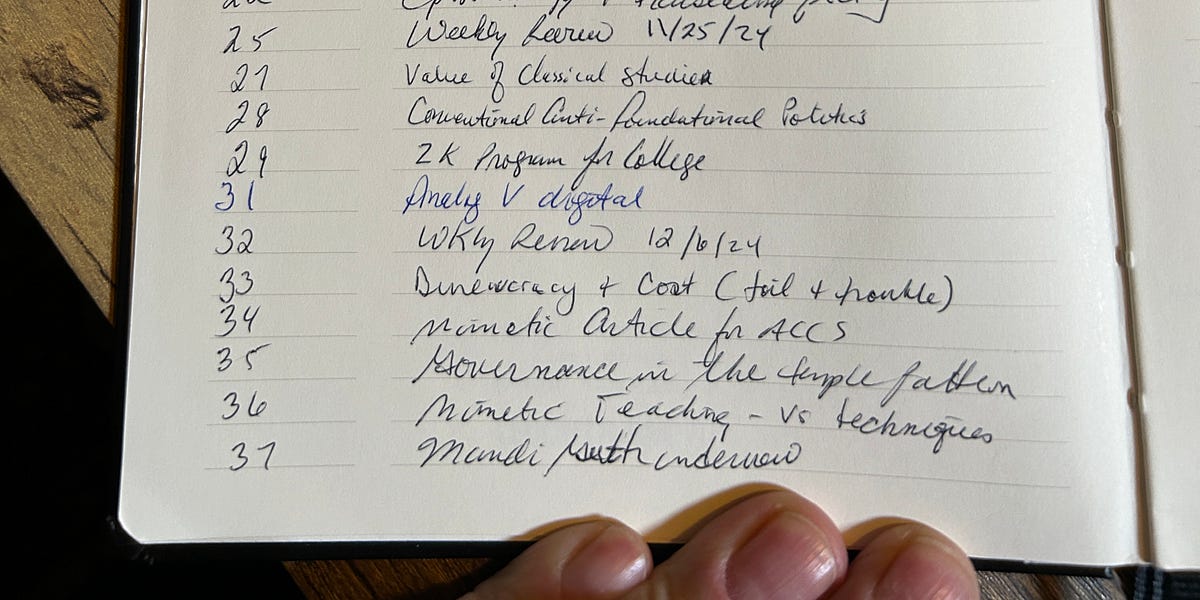 25 Weekly Review 11/25/24
27 Value of Classical Studies
28 Conventional Anti-foundational Politics
29 2K Program for College
31 Analog V digital
32 Wkly Review 12/6/24
33 Bureaucracy + Cost (toil + trouble)
34 Mimetic Article for ACCS
35 Governance in the temple pattern
36 Mimetic Teaching - vs techniques
37 Mandi